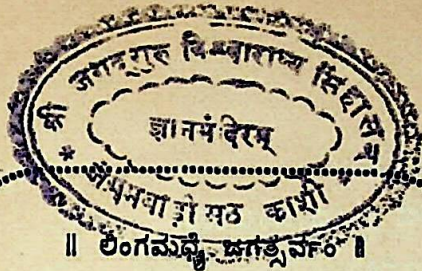 श्री जगद्गुरु विश्वाराध्य सिंहासन
ज्ञानमंदिरम्
* जंगमवाड़ी मठ काशी *
॥ ಲಿಂಗಮಧ್ಯೆ ಜಗತ್ಸರ್ವಂ ॥